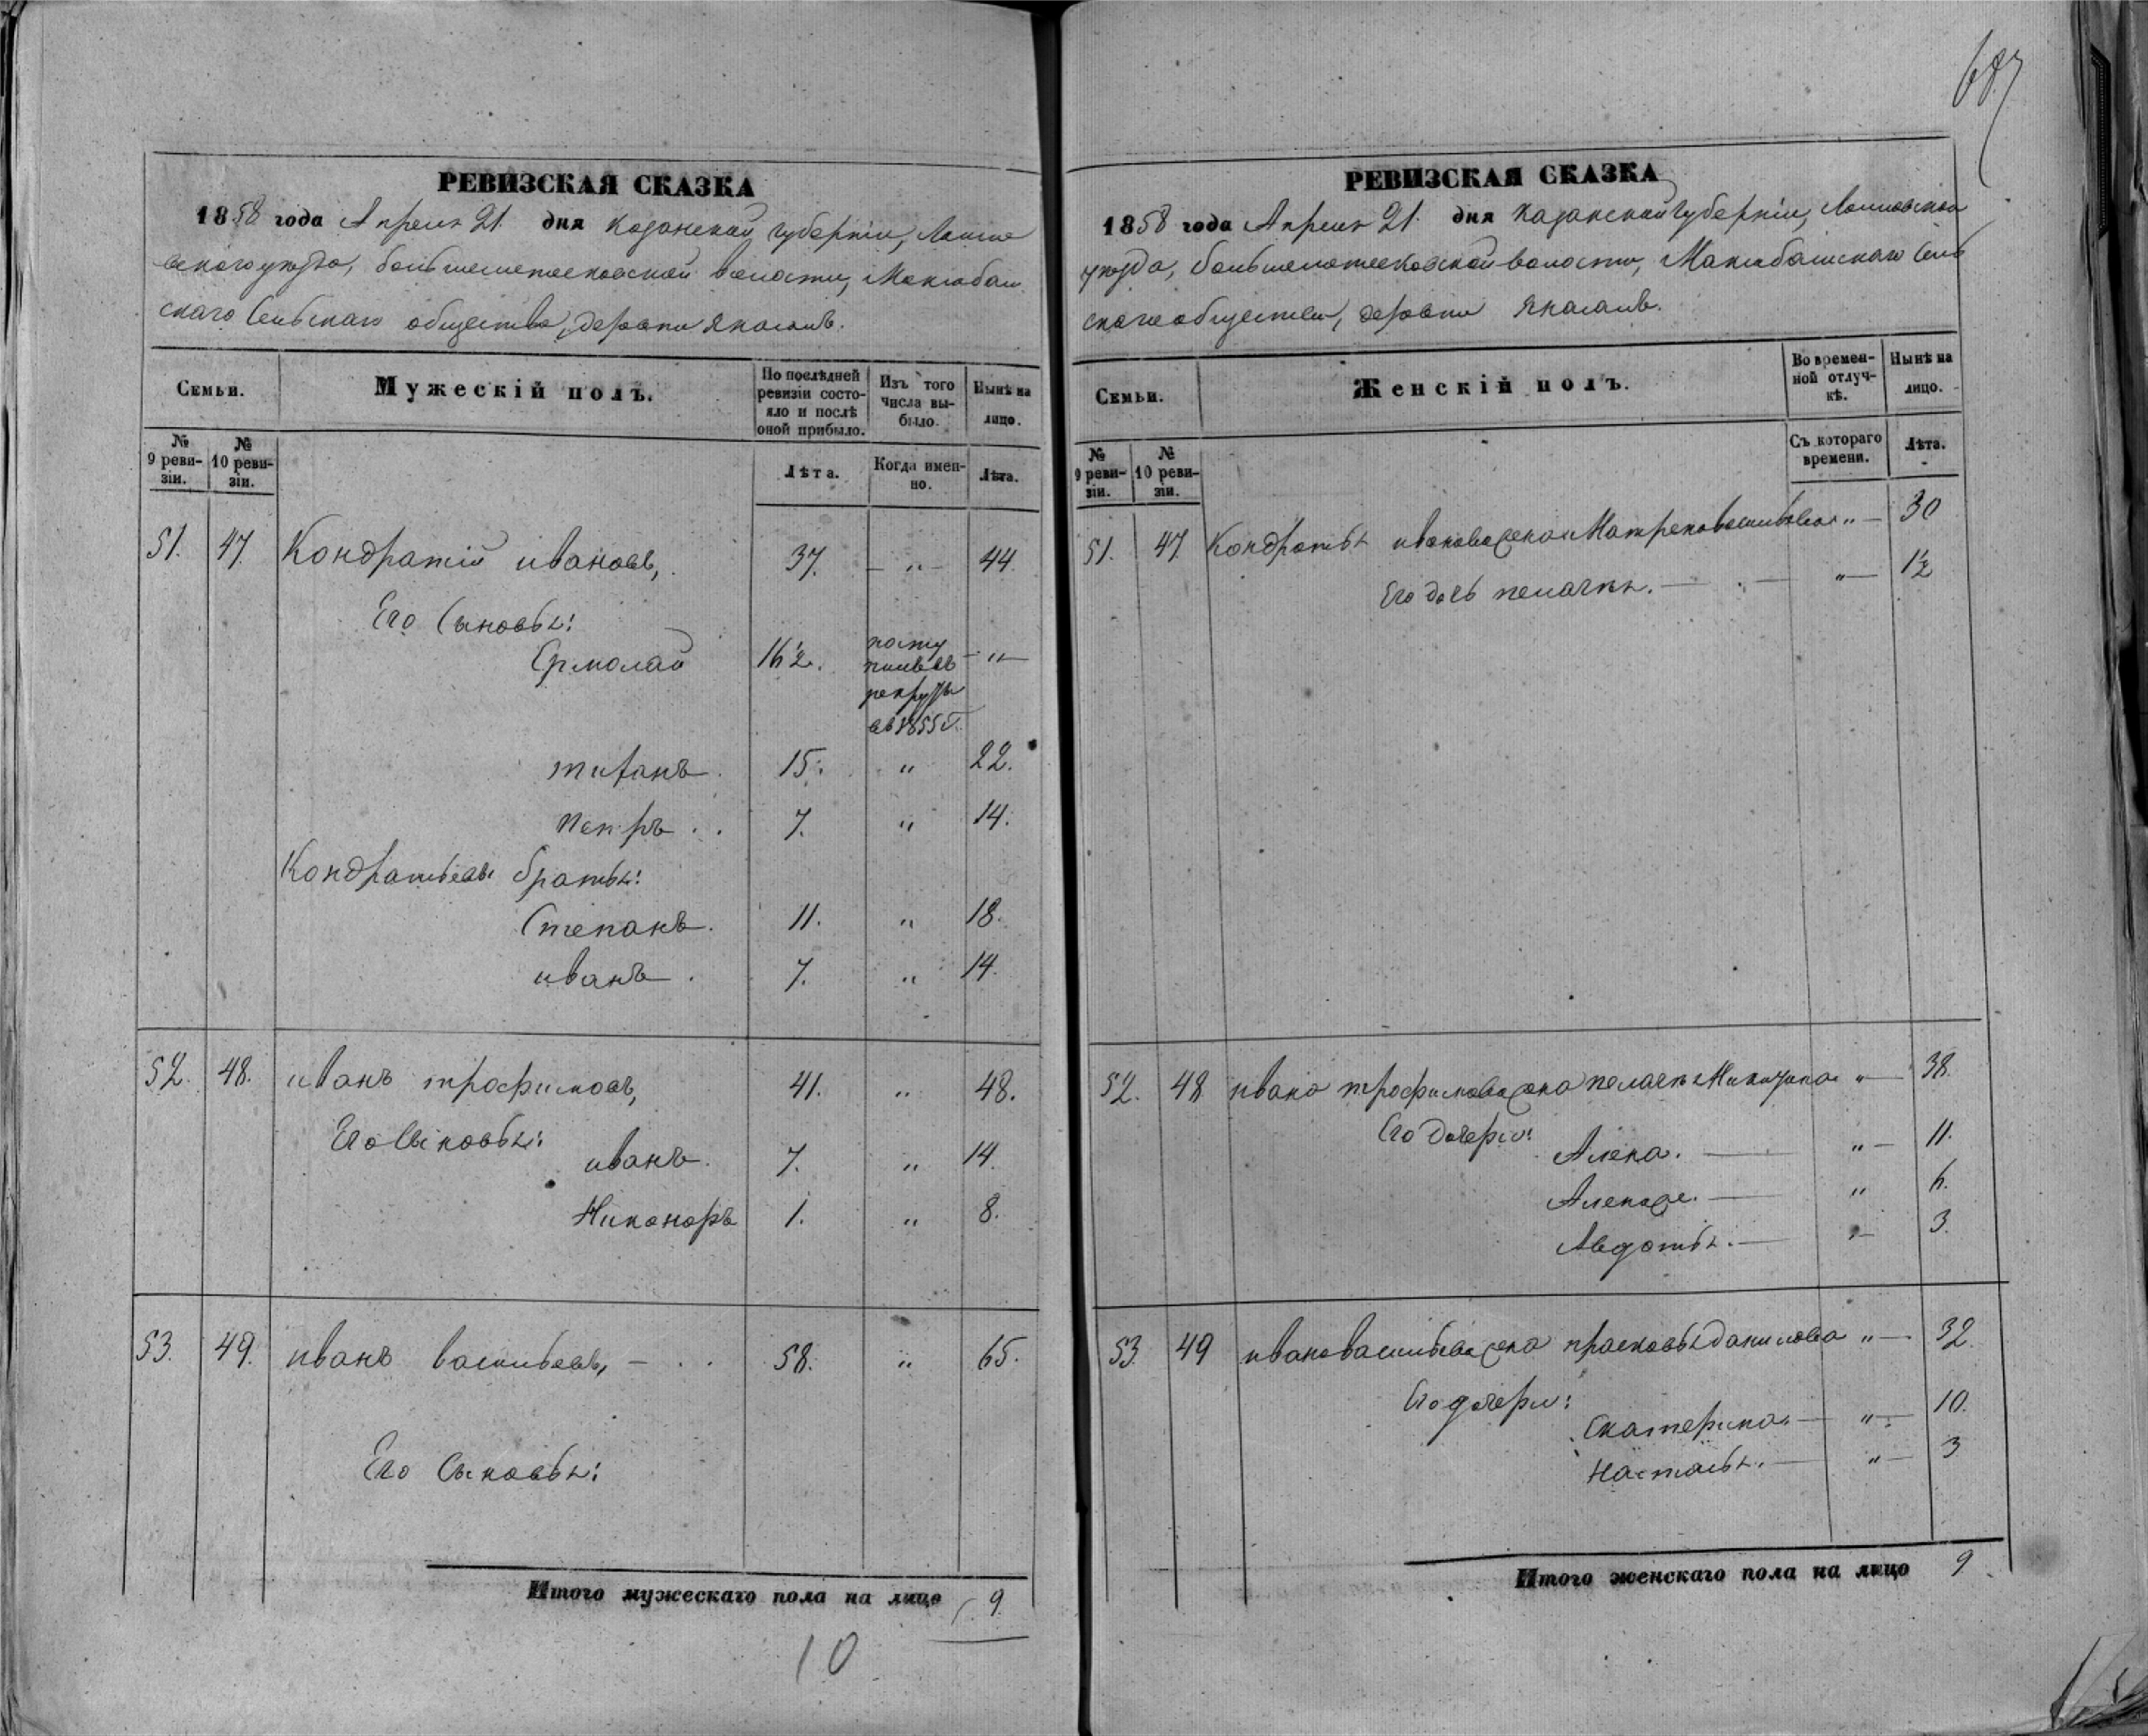 687
РЕВИЗСКАЯ СКАЗКА
1858 года Апреля 21 дня Казанской губернiи, Лаише
вскаго уезда, большеметесковской волости, Макс
скаго Сельскаго общества, деревни
Семьи.
Мужескiй полъ.
По послѣдней
ревизiи состо-
яло и послѣ
оной прибыло.
Изъ того
числа вы-
было.
Нынѣ на
лицо.
№
9 реви-
зiи.
№
10 реви-
зiи.
Лѣта.
Когда имен-
но.
Лѣта.
51. 47. Кондратiй ивановъ, 37. — „ — 44.
Его Сыновья:
Ермолай 16½. посту
пилъ въ
рекруты
въ 1855 г. — „ —
тифанъ. 15. „ 22.
Петръ . . 7. „ 14.
Кондратьевы братья:
Степанъ. 11. „ 18.
иванъ . 7. „ 14.
52. 48. иванъ трофимовъ, 41. „ 48.
Его Сыновья:
иванъ. 7. „ 14.
Никоноръ 1. „ 8.
53. 49. иванъ васильевъ, — . . 58. „ 65.
Его Сыновья:
Итого мужескаго пола на лицо 9.
10
РЕВИЗСКАЯ СКАЗКА
1858 года Апреля 21. дня Казанской губернiи,
уезда, волости, Сель
скаго общества, деревни
Семьи.
Женскiй полъ.
Во времен-
ной отлуч-
кѣ.
Нынѣ на
лицо.
№
9 реви-
зiи.
№
10 реви-
зiи.
Съ котораго
времени.
Лѣта.
51. 47. Кондратья иванова жена Матрена васильева „ — 30
Его дочь пелагея. — „ — 1½
52. 48 ивана трофимова жена пелагея Никитина „ — 38.
Его дочери:
Алена. — „ — 11.
— „ 6.
Авдотья. — „ — 3.
53. 49 ивана васильева жена прасковья данилова „ — 32.
Его дочери:
Екатерина. — „ — 10.
Настасья. — „ — 3
Итого женскаго пола на лицо 9.